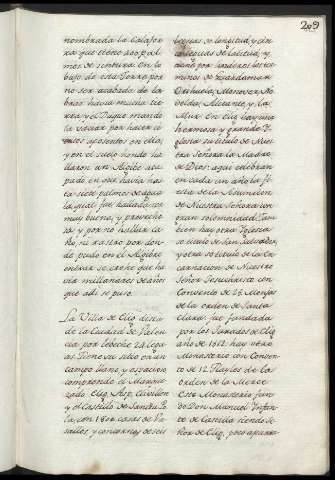 209
nombrada la Calahor
rra que tiene 200 pal
mos de ventura. En lo
baxo de esta Torre por
no ser acabada de la
brar havia mucha tie
rra y el Duque mando
la sacar por hacer ci
ertos aposentos en ella,
y en el suelo hondo ha
llaron un Algibe ata
pado en que havia has
ta siete palmos de agua
la qual fue hallada ser
muy buena, y provecho
sa y por no hallar ca
ño ni rastro por don
de pudo en el Algibe
entrar se crehe que ha
via millanares de años
que alli se puso.
La Villa de Elig dista
de la Ciudad de Valen
cia por Lebeche 23 legu
as. Tiene su sitio en un
campo llano y espacioso
comprende el Marque
zado Elig, Asp, Crivillen
y el Castillo de Santa Po
la, con 1800 casas de Va
sallos, y contornos de seis
leguas de longitud, y cin
co leguas de latitud, y
tiene por linderos los ter
minos de Guardamar
Orihuela, Monover, No
velda, Alicante, y la
Mur. En Elig hay una
hermosa y grande Y
glesia su titulo de Nues
tra Señora la Madre
de Dios: aqui celebran
en cada un año la fi
esta de la Asuncion
de Nuestra Señora con
gran solemnidad. Tam
bien hay otra Yglesia
so titulo de San Salvador,
y otra so titulo de la En
carnacion de Nuestro
Señor Jesuchristo con
Convento de 26 Monjas
de la orden de Santa
Clara: fue fundada
por los Jurados de Elig
año de 1517. hay otro
Monasterio con Conven
to de 12 Frayles de la
Orden de la Merce
Este Monasterio fun
do Don Manuel Infan
te de Castilla siendo Se
ñor de Elig, poco aparta